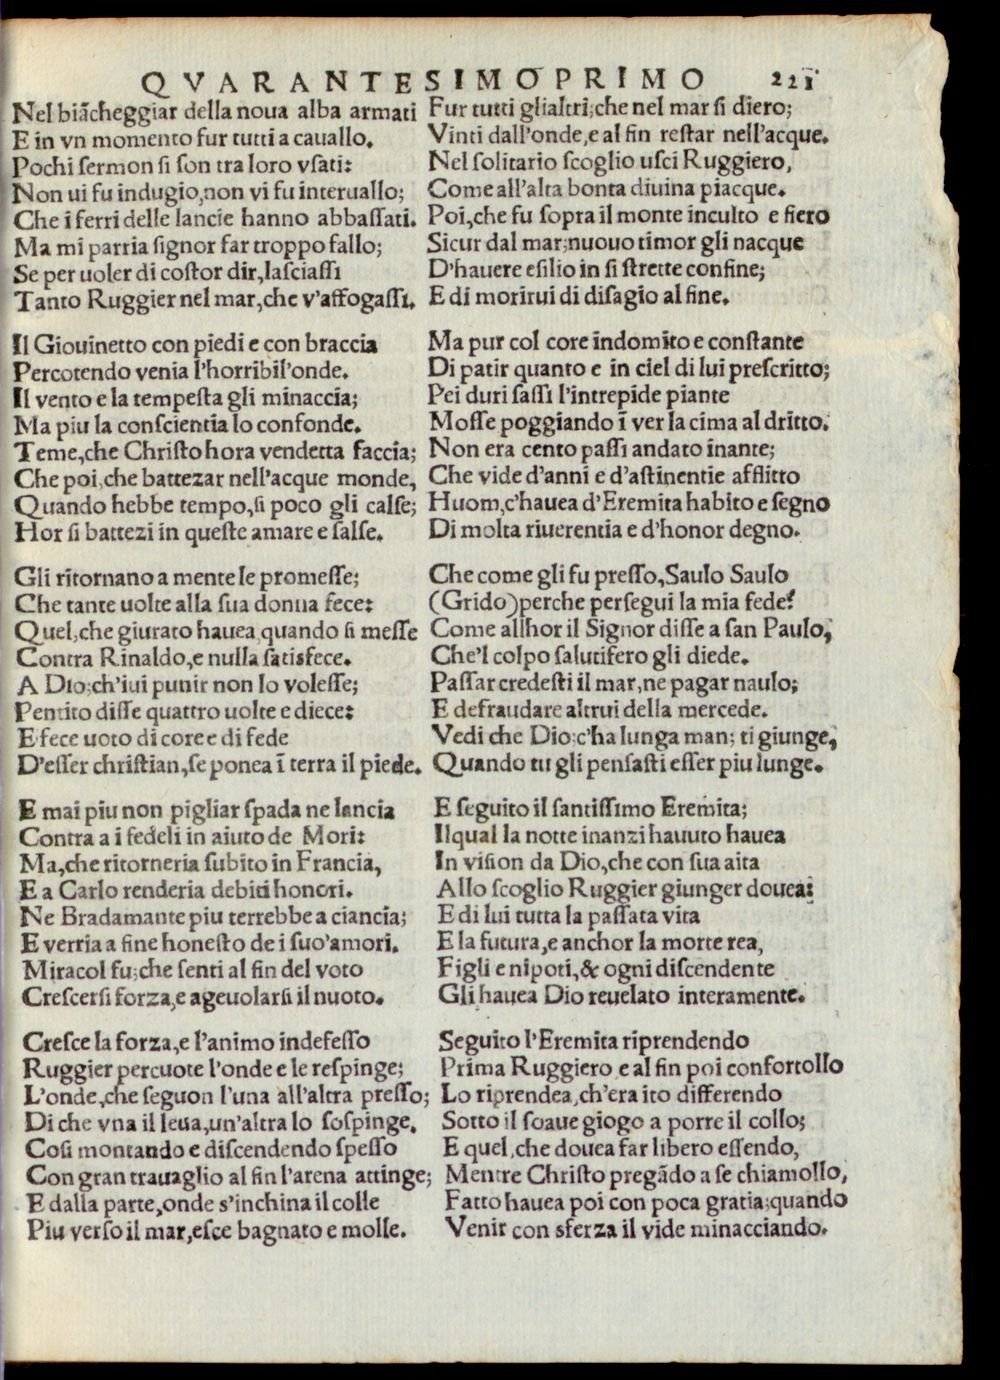 QVARANTESIMOPRIMO 221
Nel biãcheggiar della noua alba armati
E in vn momento fur tutti a cauallo.
Pochi sermon si son tra loro vsati:
Non ui fu indugio, non vi fu interuallo;
Che i ferri delle lancie hanno abbassati.
Ma mi parria signor far troppo fallo;
Se per uoler di costor dir, lasciassi
Tanto Ruggier nel mar, che v'affogassi.
Il Giouinetto con piedi e con braccia
Percotendo venia l'horribil'onde.
Il vento e la tempesta gli minaccia;
Ma piu la conscientia lo confonde.
Teme, che Christo hora vendetta faccia;
Che poi, che battezar nell'acque monde,
Quando hebbe tempo, si poco gli calse;
Hor si battezi in queste amare e salse.
Gli ritornano a mente le promesse;
Che tante uolte alla sua donna fece:
Quel, che giurato hauea, quando si messe
Contra Rinaldo, e nulla satisfece.
A Dio; ch'iui punir non lo volesse;
Pentito disse quattro uolte e diece:
E fece uoto di core e di fede
D'esser christian, se ponea ĩ terra il piede.
E mai piu non pigliar spada ne lancia
Contra a i fedeli in aiuto de Mori:
Ma, che ritorneria subito in Francia,
E a Carlo renderia debiti honori.
Ne Bradamante piu terrebbe a ciancia;
E verria a fine honesto de i suo'amori.
Miracol fu; che senti al fin del voto
Crescersi forza, e ageuolarsi il nuoto.
Cresce la forza, e l'animo indefesso
Ruggier percuote l'onde e le respinge;
L'onde, che seguon l'una all'altra presso;
Di che vna il leua, un'altra lo sospinge.
Cosi montando e discendendo spesso
Con gran trauaglio al fin l'arena attinge;
E dalla parte, onde s'inchina il colle
Piu verso il mar, esce bagnato e molle.
Fur tutti glialtri; che nel mar si diero;
Vinti dall'onde, e al fin restar nell'acque.
Nel solitario scoglio usci Ruggiero,
Come all'alta bonta diuina piacque.
Poi, che fu sopra il monte inculto e fiero
Sicur dal mar; nuouo timor gli nacque
D'hauere esilio in si strette confine;
E di morirui di disagio al fine.
Ma pur col core indomito e constante
Di patir quanto e in ciel di lui prescritto;
Pei duri sassi l'intrepide piante
Mosse poggiando ĩ ver la cima al dritto.
Non era cento passi andato inante;
Che vide d'anni e d'astinentie afflitto
Huom, c'hauea d'Eremita habito e segno
Di molta riuerentia e d'honor degno.
Che come gli fu presso, Saulo Saulo
(Grido) perche persegui la mia fede?
Come allhor il Signor disse a san Paulo,
Che'l colpo salutifero gli diede.
Passar credesti il mar, ne pagar naulo;
E defraudare altrui della mercede.
Vedi che Dio; c'ha lunga man; ti giunge,
Quando tu gli pensasti esser piu lunge.
E seguito il santissimo Eremita;
Ilqual la notte inanzi hauuto hauea
In vision da Dio, che con sua aita
Allo scoglio Ruggier giunger douea:
E di lui tutta la passata vita
E la futura, e anchor la morte rea,
Figli e nipoti, & ogni discendente
Gli hauea Dio reuelato interamente.
Seguito l'Eremita riprendendo
Prima Ruggiero e al fin poi confortollo
Lo riprendea, ch'era ito differendo
Sotto il soaue giogo a porre il collo;
E quel, che douea far libero essendo,
Mentre Christo pregãdo a se chiamollo,
Fatto hauea poi con poca gratia; quando
Venir con sferza il vide minacciando.